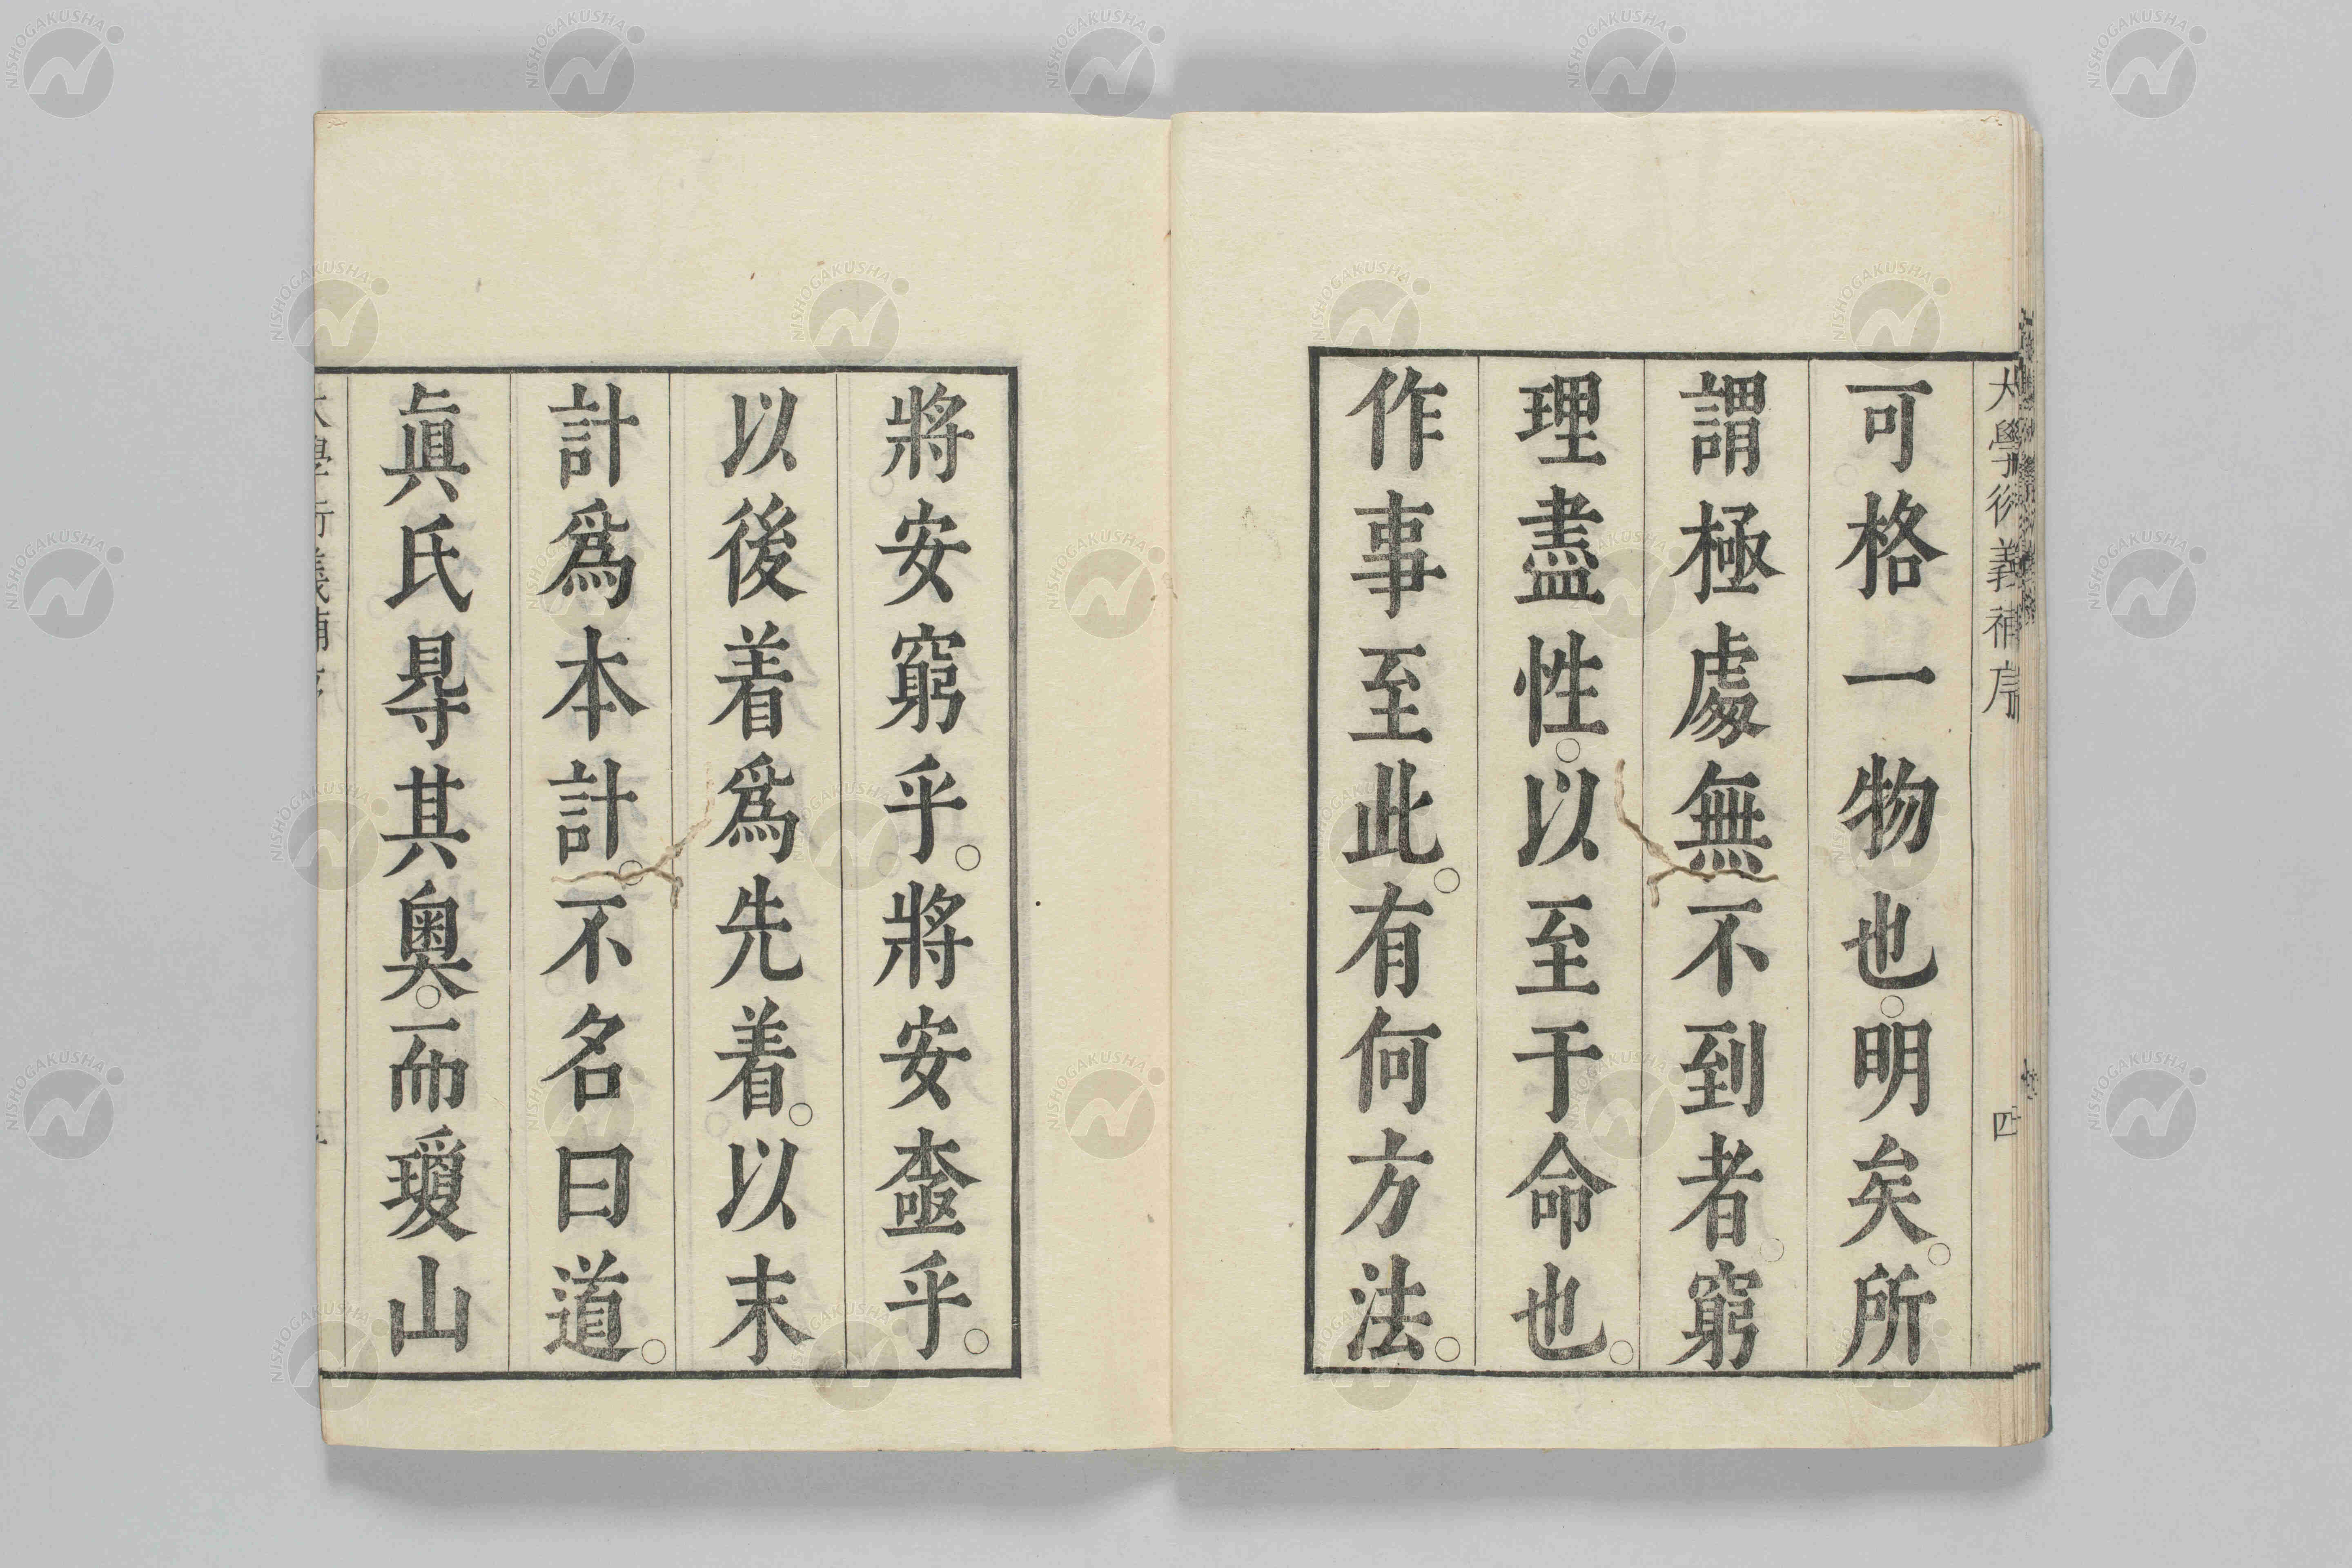 大學衍義補序
四
可格一物也○明矣○所
謂極處無不到者窮
理盡性○以至于命也○
作事至此○有何方法○
將安窮乎○將安盡乎○
以後着爲先着○以末
計爲本計○不名曰道○
眞氏㝵其奧○而瓊山
NISHOGAKUSHA